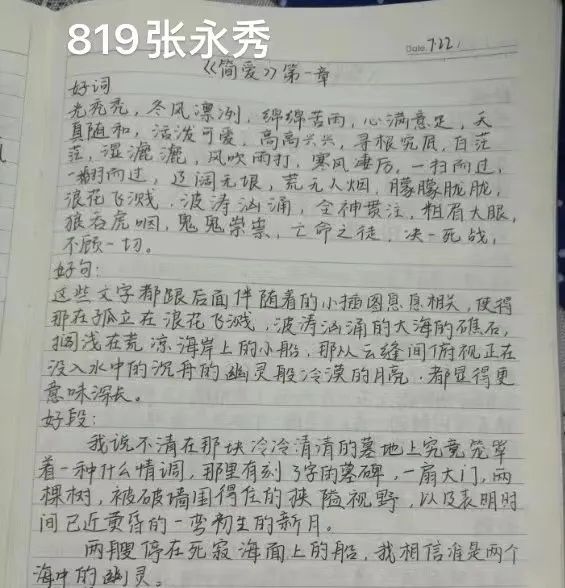 819张永秀
Date. 7.22.
《简爱》第一章
好词
光秃秃，冬风凛冽，绵绵苦雨，心满意足，天
真随和，活泼可爱，高高兴兴，寻根究底，白茫
茫，湿漉漉，风吹雨打，寒风凄厉，一扫而过，
一翻而过，辽阔无垠，荒无人烟，朦朦胧胧，
浪花飞溅，波涛汹涌，全神贯注，粗眉大眼，
狼吞虎咽，鬼鬼祟祟，亡命之徒，决一死战，
不顾一切。
好句：
这些文字都跟后面伴随着的小插图息息相关，使得
那在孤立在浪花飞溅，波涛汹涌的大海的礁石，
搁浅在荒凉海岸上的小船，那从云缝间俯视正在
没入水中的沉舟的幽灵般冷漠的月亮，都显得更
意味深长。
好段：
我说不清在那块冷冷清清的墓地上究竟笼罩
着一种什么情调，那里有刻了字的墓碑，一扇大门，两
棵树，被破墙围得住的狭隘视野，以及表明时
间已近黄昏的一弯初生的新月。
两艘停在死寂海面上的船，我相信准是两个
海中的幽灵。